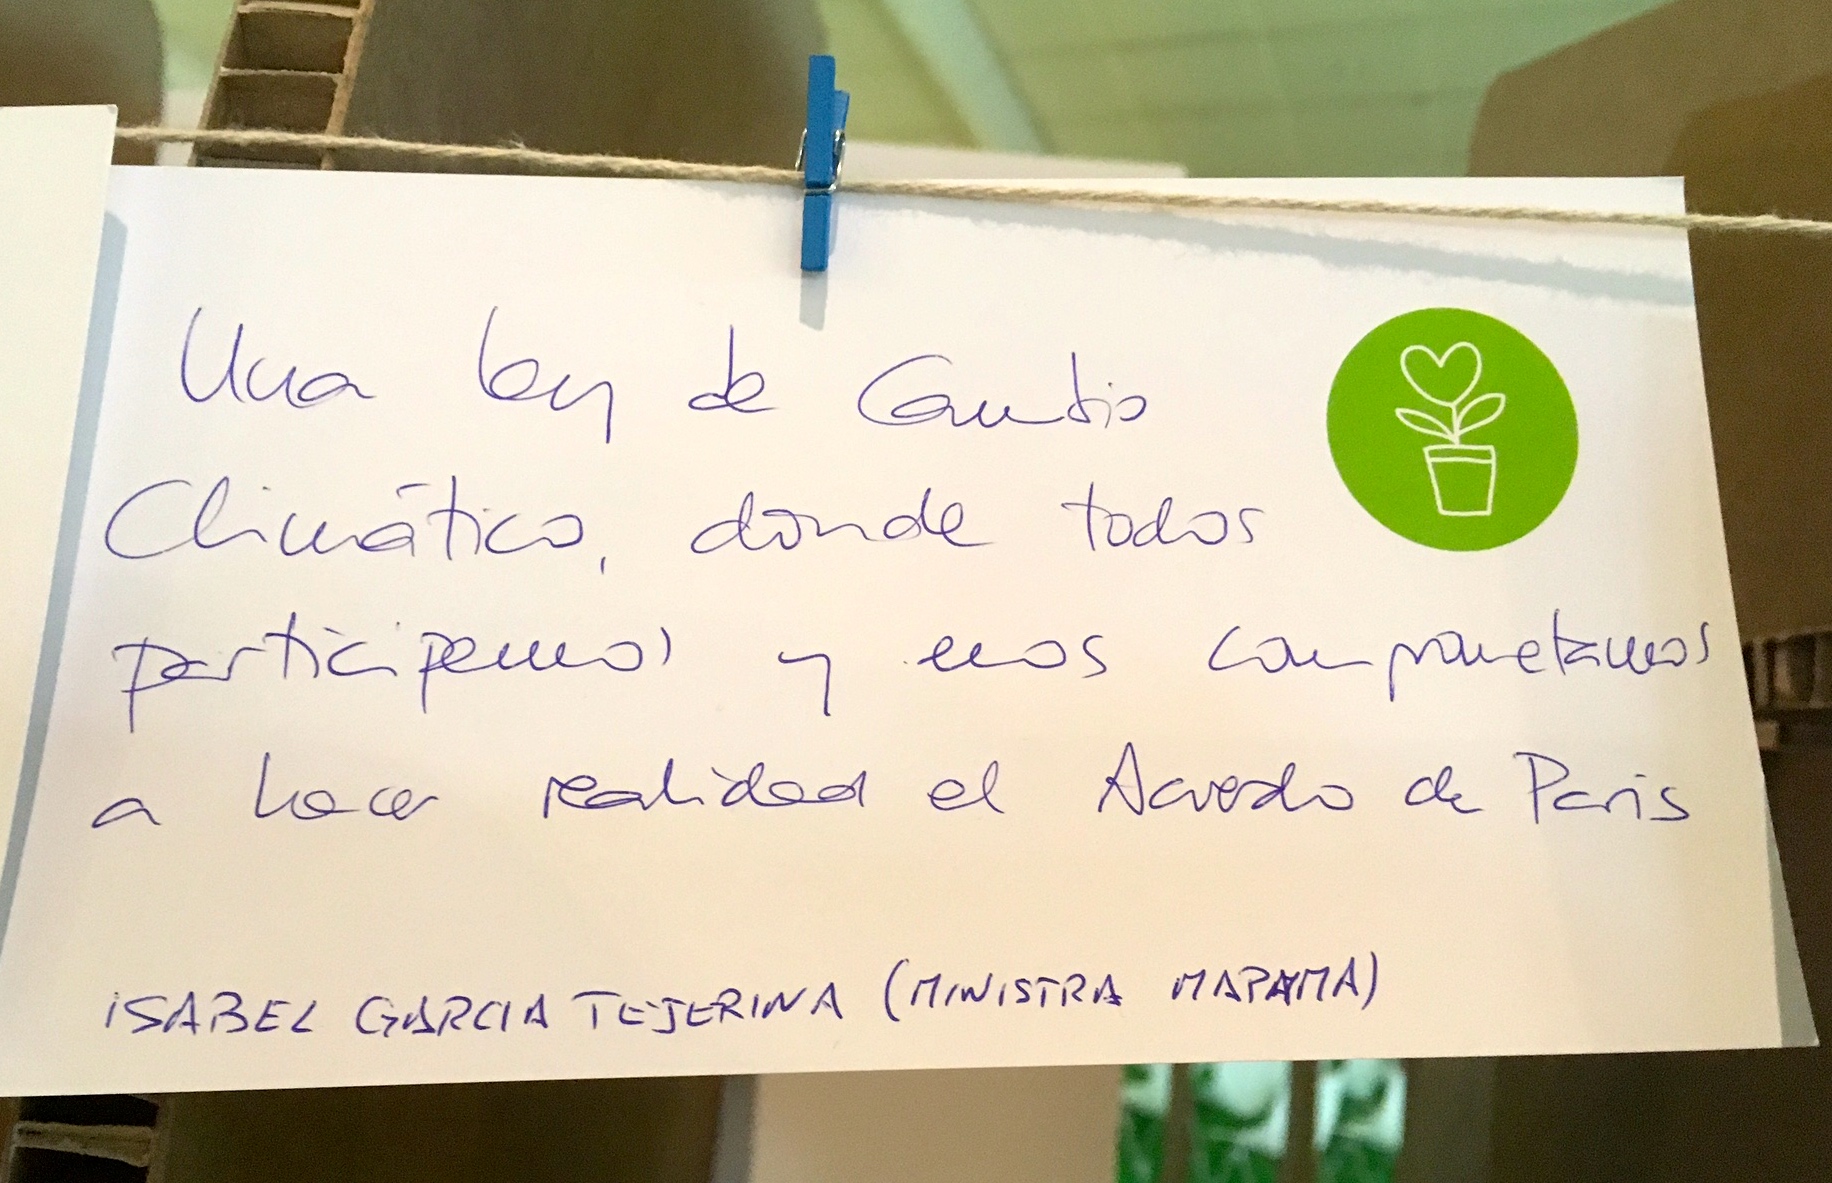 Una ley de Cambio
Climático, donde todos
participemos y nos comprometamos
a hacer realidad el Acuerdo de Paris
ISABEL GARCIA TEJERINA (MINISTRA MAPAMA)